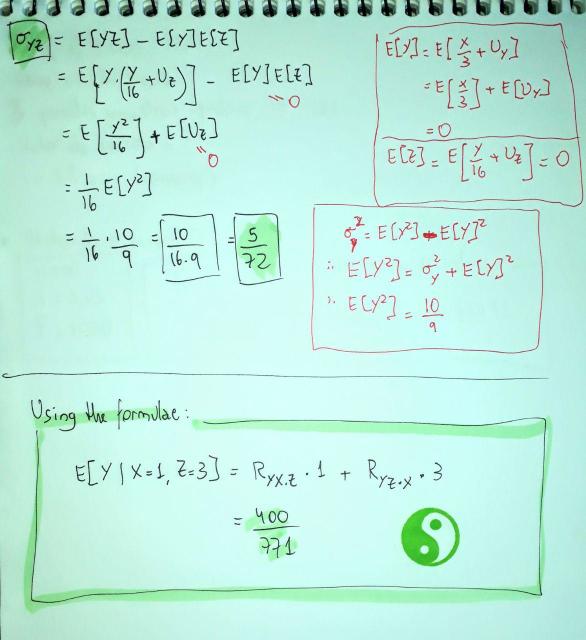 σ_YZ = E[YZ] - E[Y]E[Z]
= E[Y·(Y/16 + U_Z)] - E[Y]E[Z]
= 0
= E[Y²/16] + E[U_Z]
= 0
= 1/16 E[Y²]
= 1/16 · 10/9 = 10/16.9 = 5/72
E[Y] = E[X/3 + U_Y]
= E[X/3] + E[U_Y]
= 0
E[Z] = E[Y/16 + U_Z] = 0
σ²_Y = E[Y²] - E[Y]²
∴ E[Y²] = σ²_Y + E[Y]²
∴ E[Y²] = 10/9
Using the formulae:
E[Y | X=1, Z=3] = R_YX.Z · 1 + R_YZ·X · 3
= 400/771